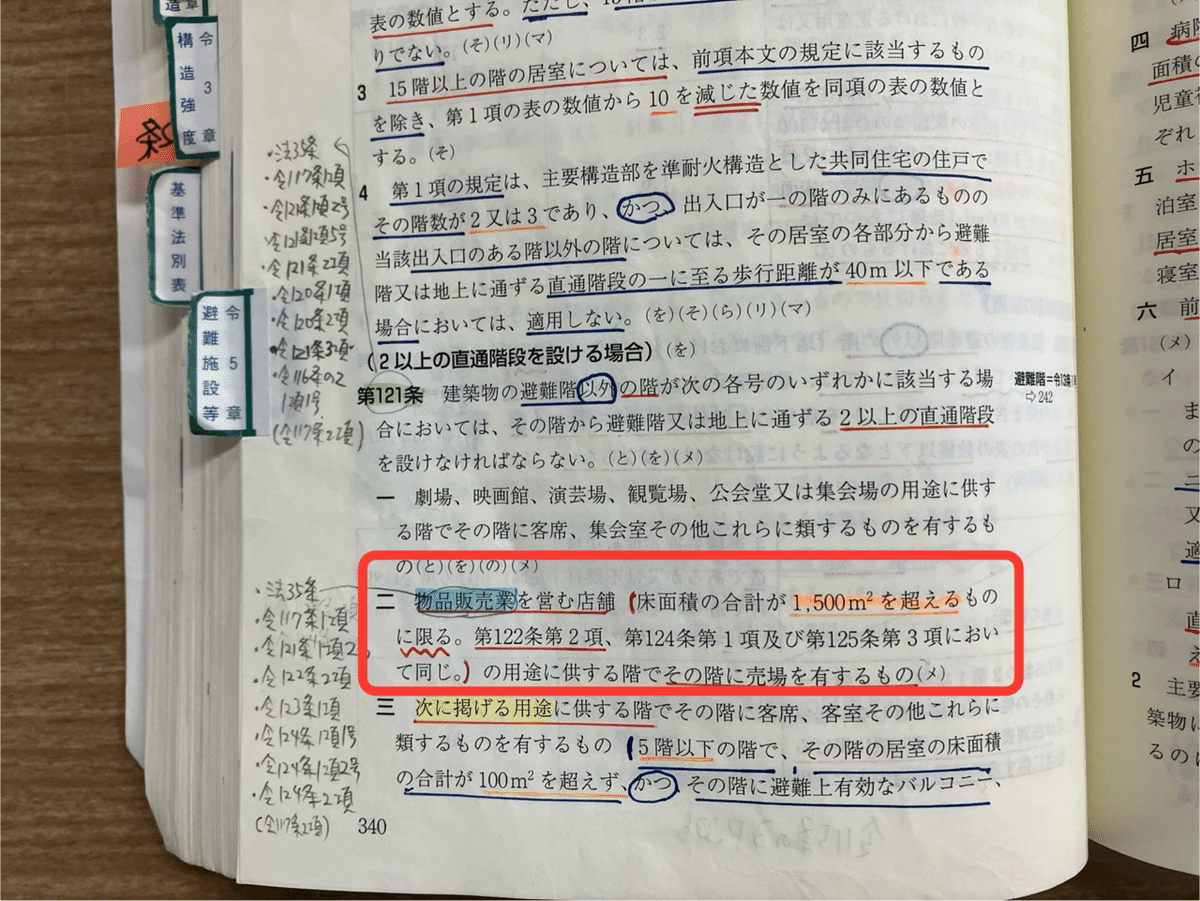 表の数値とする。ただし、
りでない。(そ)(リ)(マ)
3 15階以上の階の居室については、前項本文の規定に該当するもの
を除き、第1項の表の数値から10を減じた数値を同項の表の数値と
する。(そ)
4 第1項の規定は、主要構造部を準耐火構造とした共同住宅の住戸で
その階数が2又は3であり、かつ、出入口が一の階のみにあるものの
当該出入口のある階以外の階については、その居室の各部分から避難
階又は地上に通ずる直通階段の一に至る歩行距離が40m以下である
場合においては、適用しない。(を)(そ)(ら)(リ)(マ)
(2以上の直通階段を設ける場合)(を)
第121条 建築物の避難階以外の階が次の各号のいずれかに該当する場
合においては、その階から避難階又は地上に通ずる2以上の直通階段
を設けなければならない。(と)(を)(メ)
一 劇場、映画館、演芸場、観覧場、公会堂又は集会場の用途に供す
る階でその階に客席、集会室その他これらに類するものを有するも
の(と)(を)(の)(メ)
二 物品販売業を営む店舗(床面積の合計が1,500m²を超えるもの
に限る。第122条第2項、第124条第1項及び第125条第3項におい
て同じ。)の用途に供する階でその階に売場を有するもの(メ)
三 次に掲げる用途に供する階でその階に客席、客室その他これらに
類するものを有するもの(5階以下の階で、その階の居室の床面積
の合計が100m²を超えず、かつ、その階に避難上有効なバルコニー、
340
避難階=令13条1号
⇨242
令3章
構造強度
基準法別表
令5章
避難施設等
・法35条
・令117条1項
・令121条1項2号
・令121条1項5号
・令121条2項
・令120条1項
・令120条2項
・令121条3項
・令116条の2
1項1号
(令117条2項)
・法35条
・令117条1項
・令121条1項2号
・令122条2項
・令123条1項
・令124条1項1号
・令124条1項2号
・令124条2項
(令117条2項)
四 病院
面積の
児童
ぞれ
五 ホ
泊室
居室
寝室
六 前
(メ)
イ
ま
の
三
又
適
ロ
直
え
2 主要
築物に
るのに